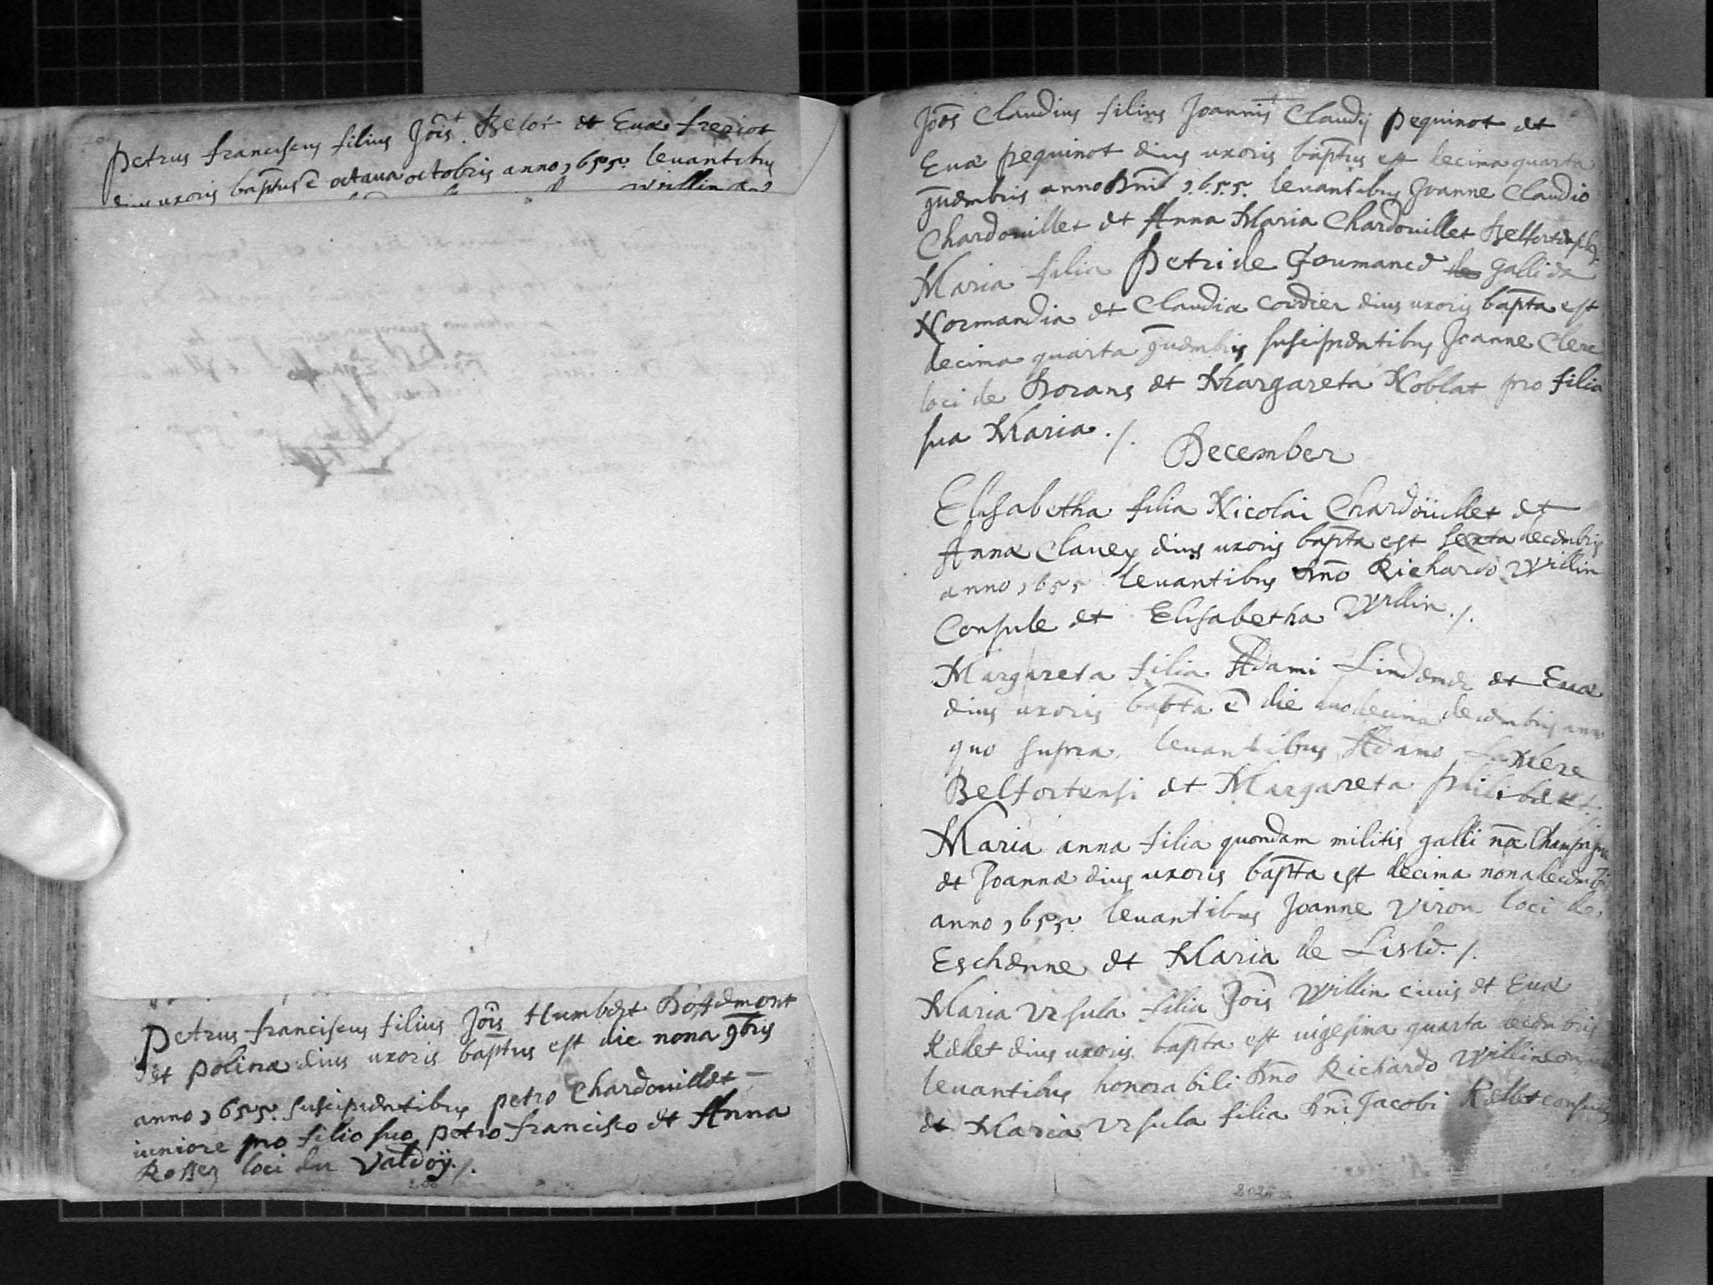 Petrus franciscus filius Jois Belot et Euæ freriot
eius uxoris baptus ē octaua octobris anno 1655. leuantibus
eius uxoris
Petrus franciscus filius Jois Humbert Boffemont
et Polinæ eius uxoris baptus est die nona 9bris
anno 1655. suscipientibus petro Chardouillet
iuniore pro filio suo petro francisco et Anna
Rossez loci du Valdoÿ ./.
Joēs Claudius filius Joannis Claudij Pequinot et
Euæ pequinot eius uxoris baptus est decima quarta
9uembris anno Dni 1655. leuantibus Joanne Claudio
Chardouillet et Anna Maria Chardouillet
Maria filia Petri de Joumaned Gallide
Normandia et Claudiæ Cordier eius uxoris bapta est
decima quarta 9uembris suscipientibus Joanne Clerc
loci de Dorans et Margareta Noblat pro filia
sua Maria ./.
December
Elisabetha filia Nicolai Chardoüillet et
Annæ Clauey eius uxoris bapta est sexta decembris
anno 1655 leuantibus Dno Richardo Willin
Consule et Elisabetha Willin ./.
Margareta filia Adami et Euæ
eius uxoris bapta ē die duodecima decembris anno
quo supra. leuantibus Adamo
Belfortensi et Margareta
Maria anna filia quondam militis galli
et Joannæ eius uxoris bapta est decima nona decembris
anno 1655. leuantibus Joanne Viron loci de
Eschenne et Maria de Lisle ./.
Maria Vrsula filia Jois Willin ciuis et Euæ
Kelet eius uxoris bapta est uigesima quarta decembris
leuantibus honorabili Dno Richardo Willin
et Maria Vrsula filia Dni Jacobi Kellet
202